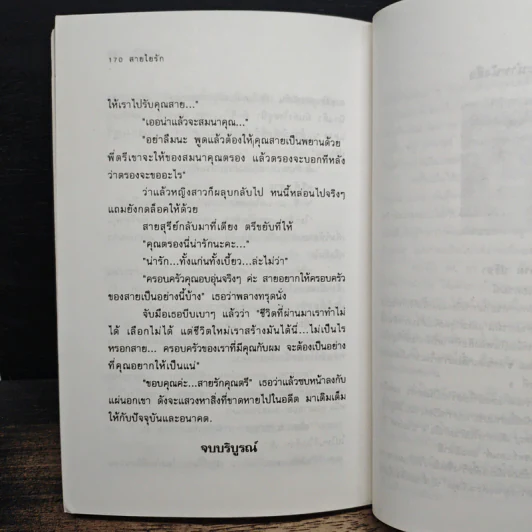 170 สายใยรัก
ให้เราไปรับคุณสาย..."
"เออน่าแล้วจะสมนาคุณ..."
"อย่าลืมนะ พูดแล้วต้องให้คุณสายเป็นพยานด้วย
พี่ตรีเขาจะให้ของสมนาคุณตรอง แล้วตรองจะบอกทีหลัง
ว่าตรองจะขออะไร"
ว่าแล้วหญิงสาวก็ผลุบกลับไป หนนี้หล่อนไปจริงๆ
แถมยังกดล็อคให้ด้วย
สายสุรีย์กลับมาที่เตียง ตรีขยับที่ให้
"คุณตรองนี่น่ารักนะคะ..."
"น่ารัก...ทั้งแก่นทั้งเบี้ยว...ล่ะไม่ว่า"
"ครอบครัวคุณอบอุ่นจริงๆ ค่ะ สายอยากให้ครอบครัว
ของสายเป็นอย่างนี้บ้าง" เธอว่าพลางทรุดนั่ง
จับมือเธอบีบเบาๆ แล้วว่า "ชีวิตที่ผ่านมาเราทำไม่
ได้ เลือกไม่ได้ แต่ชีวิตใหม่เราสร้างมันได้นี่...ไม่เป็นไร
หรอกสาย... ครอบครัวของเราที่มีคุณกับผม จะต้องเป็นอย่าง
ที่คุณอยากให้เป็นแน่"
"ขอบคุณค่ะ...สายรักคุณตรี" เธอว่าแล้วซบหน้าลงกับ
แผ่นอกเขา ดังจะแสวงหาสิ่งที่ขาดหายไปในอดีต มาเติมเต็ม
ให้กับปัจจุบันและอนาคต.
จบบริบูรณ์